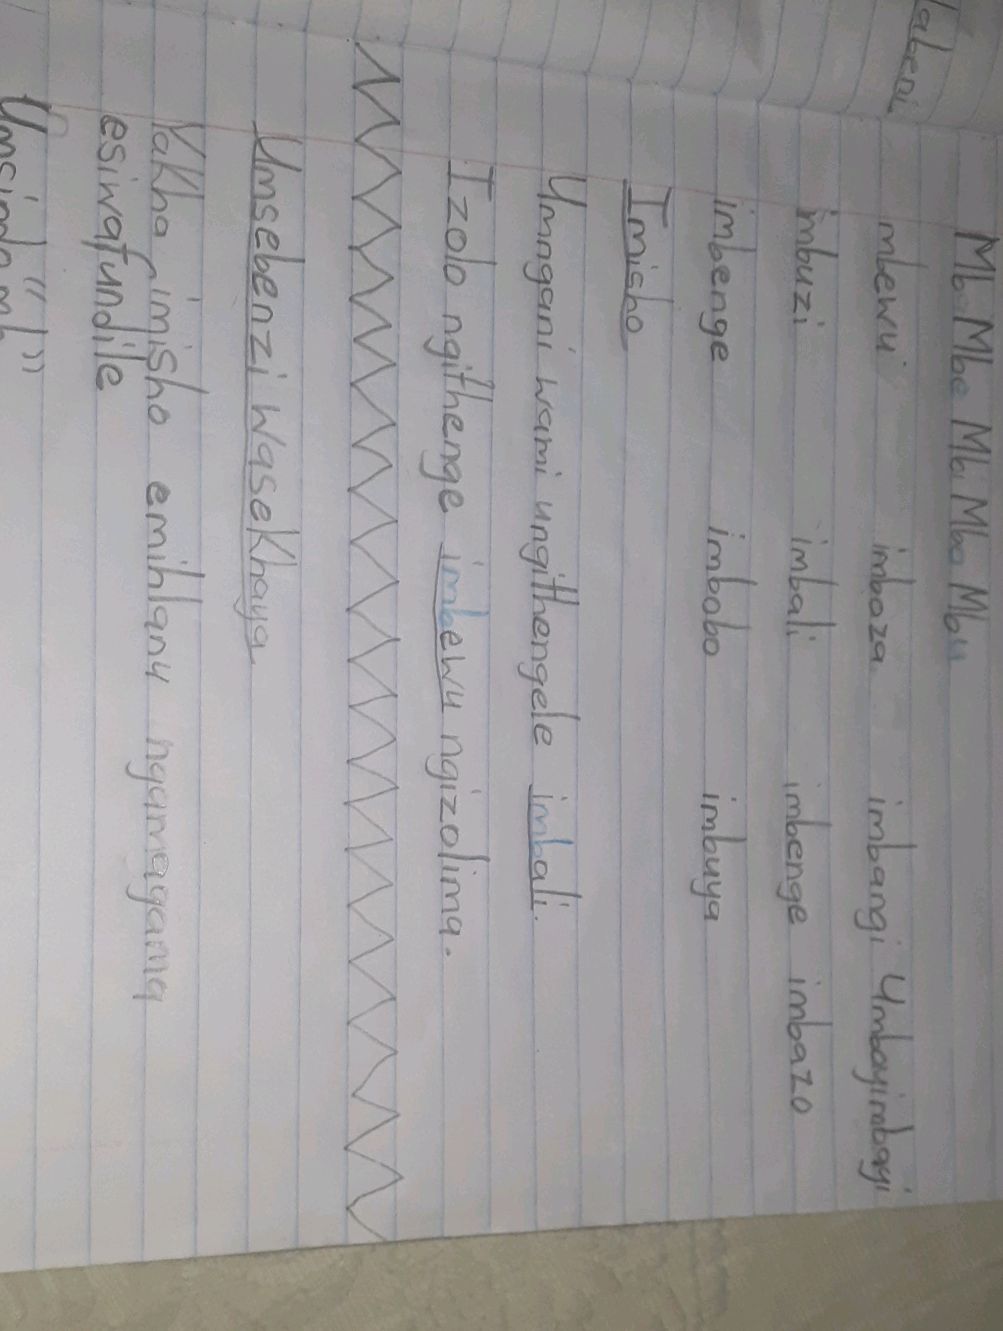 Mba Mbe Mbi Mbo Mbu
mbewu imbaza imbangi Umbayimbayi
imbuzi imbali imbenge imbazo
imbenge imbobo imbuya
Imisho
Umngani wami ungithengele imbali.
Izolo ngithenge imbewu ngizolima.
Umsebenzi Wasekhaya
Yakha imisho emihlanu ngamagama
esiwafundile